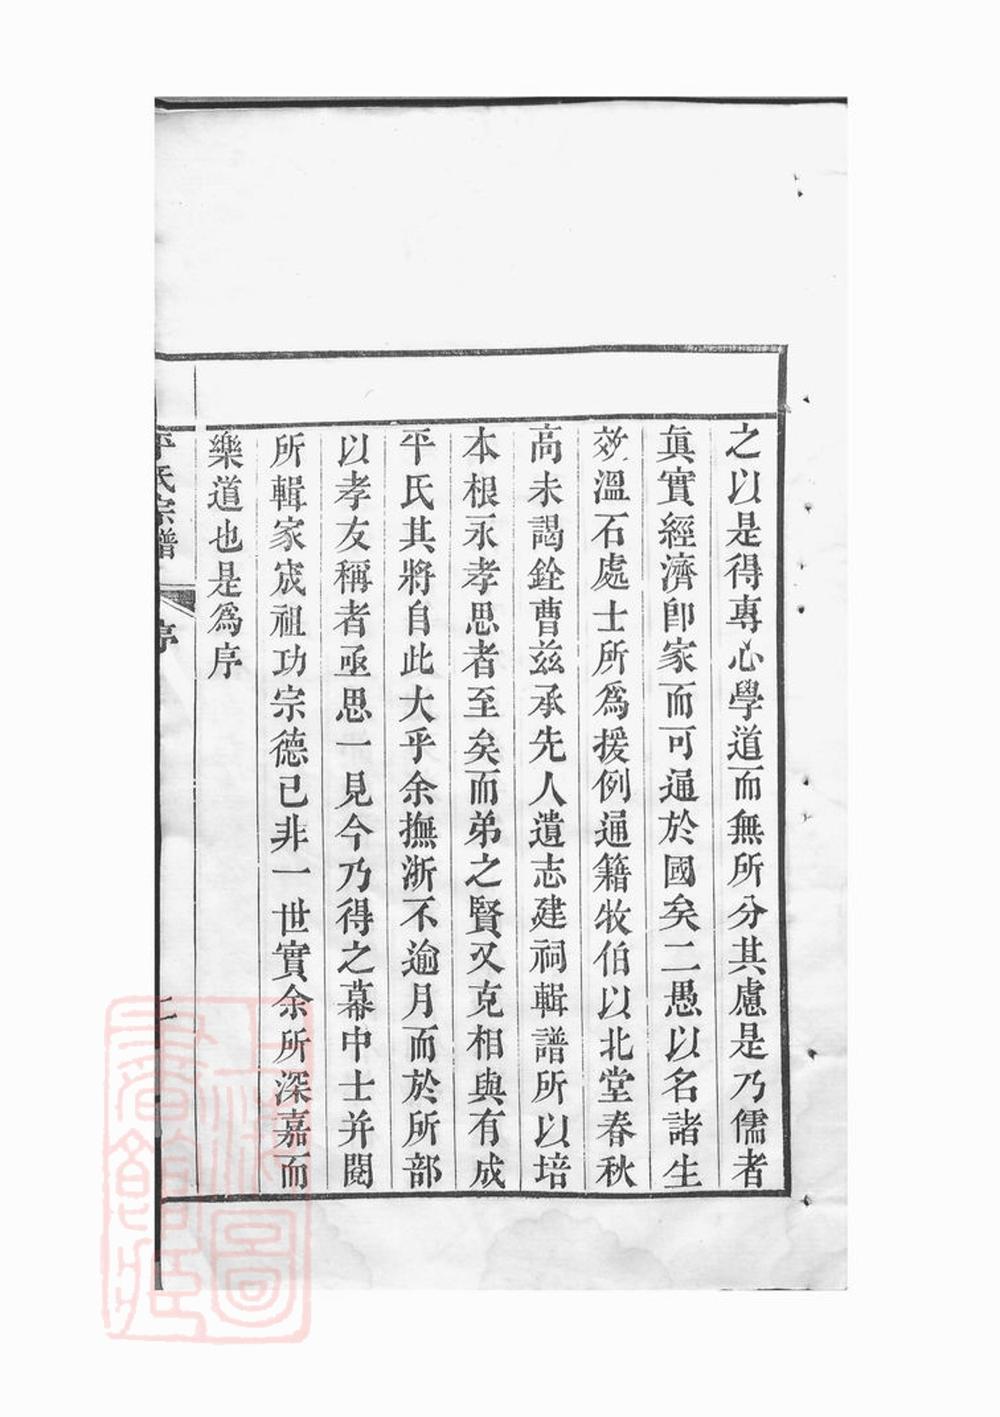 之以是得專心學道而無所分其慮是乃儒者
眞實經濟卽家而可通於國矣二愚以名諸生
效溫石處士所爲援例通籍牧伯以北堂春秋
高未謁銓曹茲承先人遺志建祠輯譜所以培
本根永孝思者至矣而弟之賢又克相與有成
平氏其將自此大乎余撫浙不逾月而於所部
以孝友稱者亟思一見今乃得之幕中士并閱
所輯家宬祖功宗德已非一世實余所深嘉而
樂道也是爲序
平氏宗譜
序
二
上海圖
書館藏